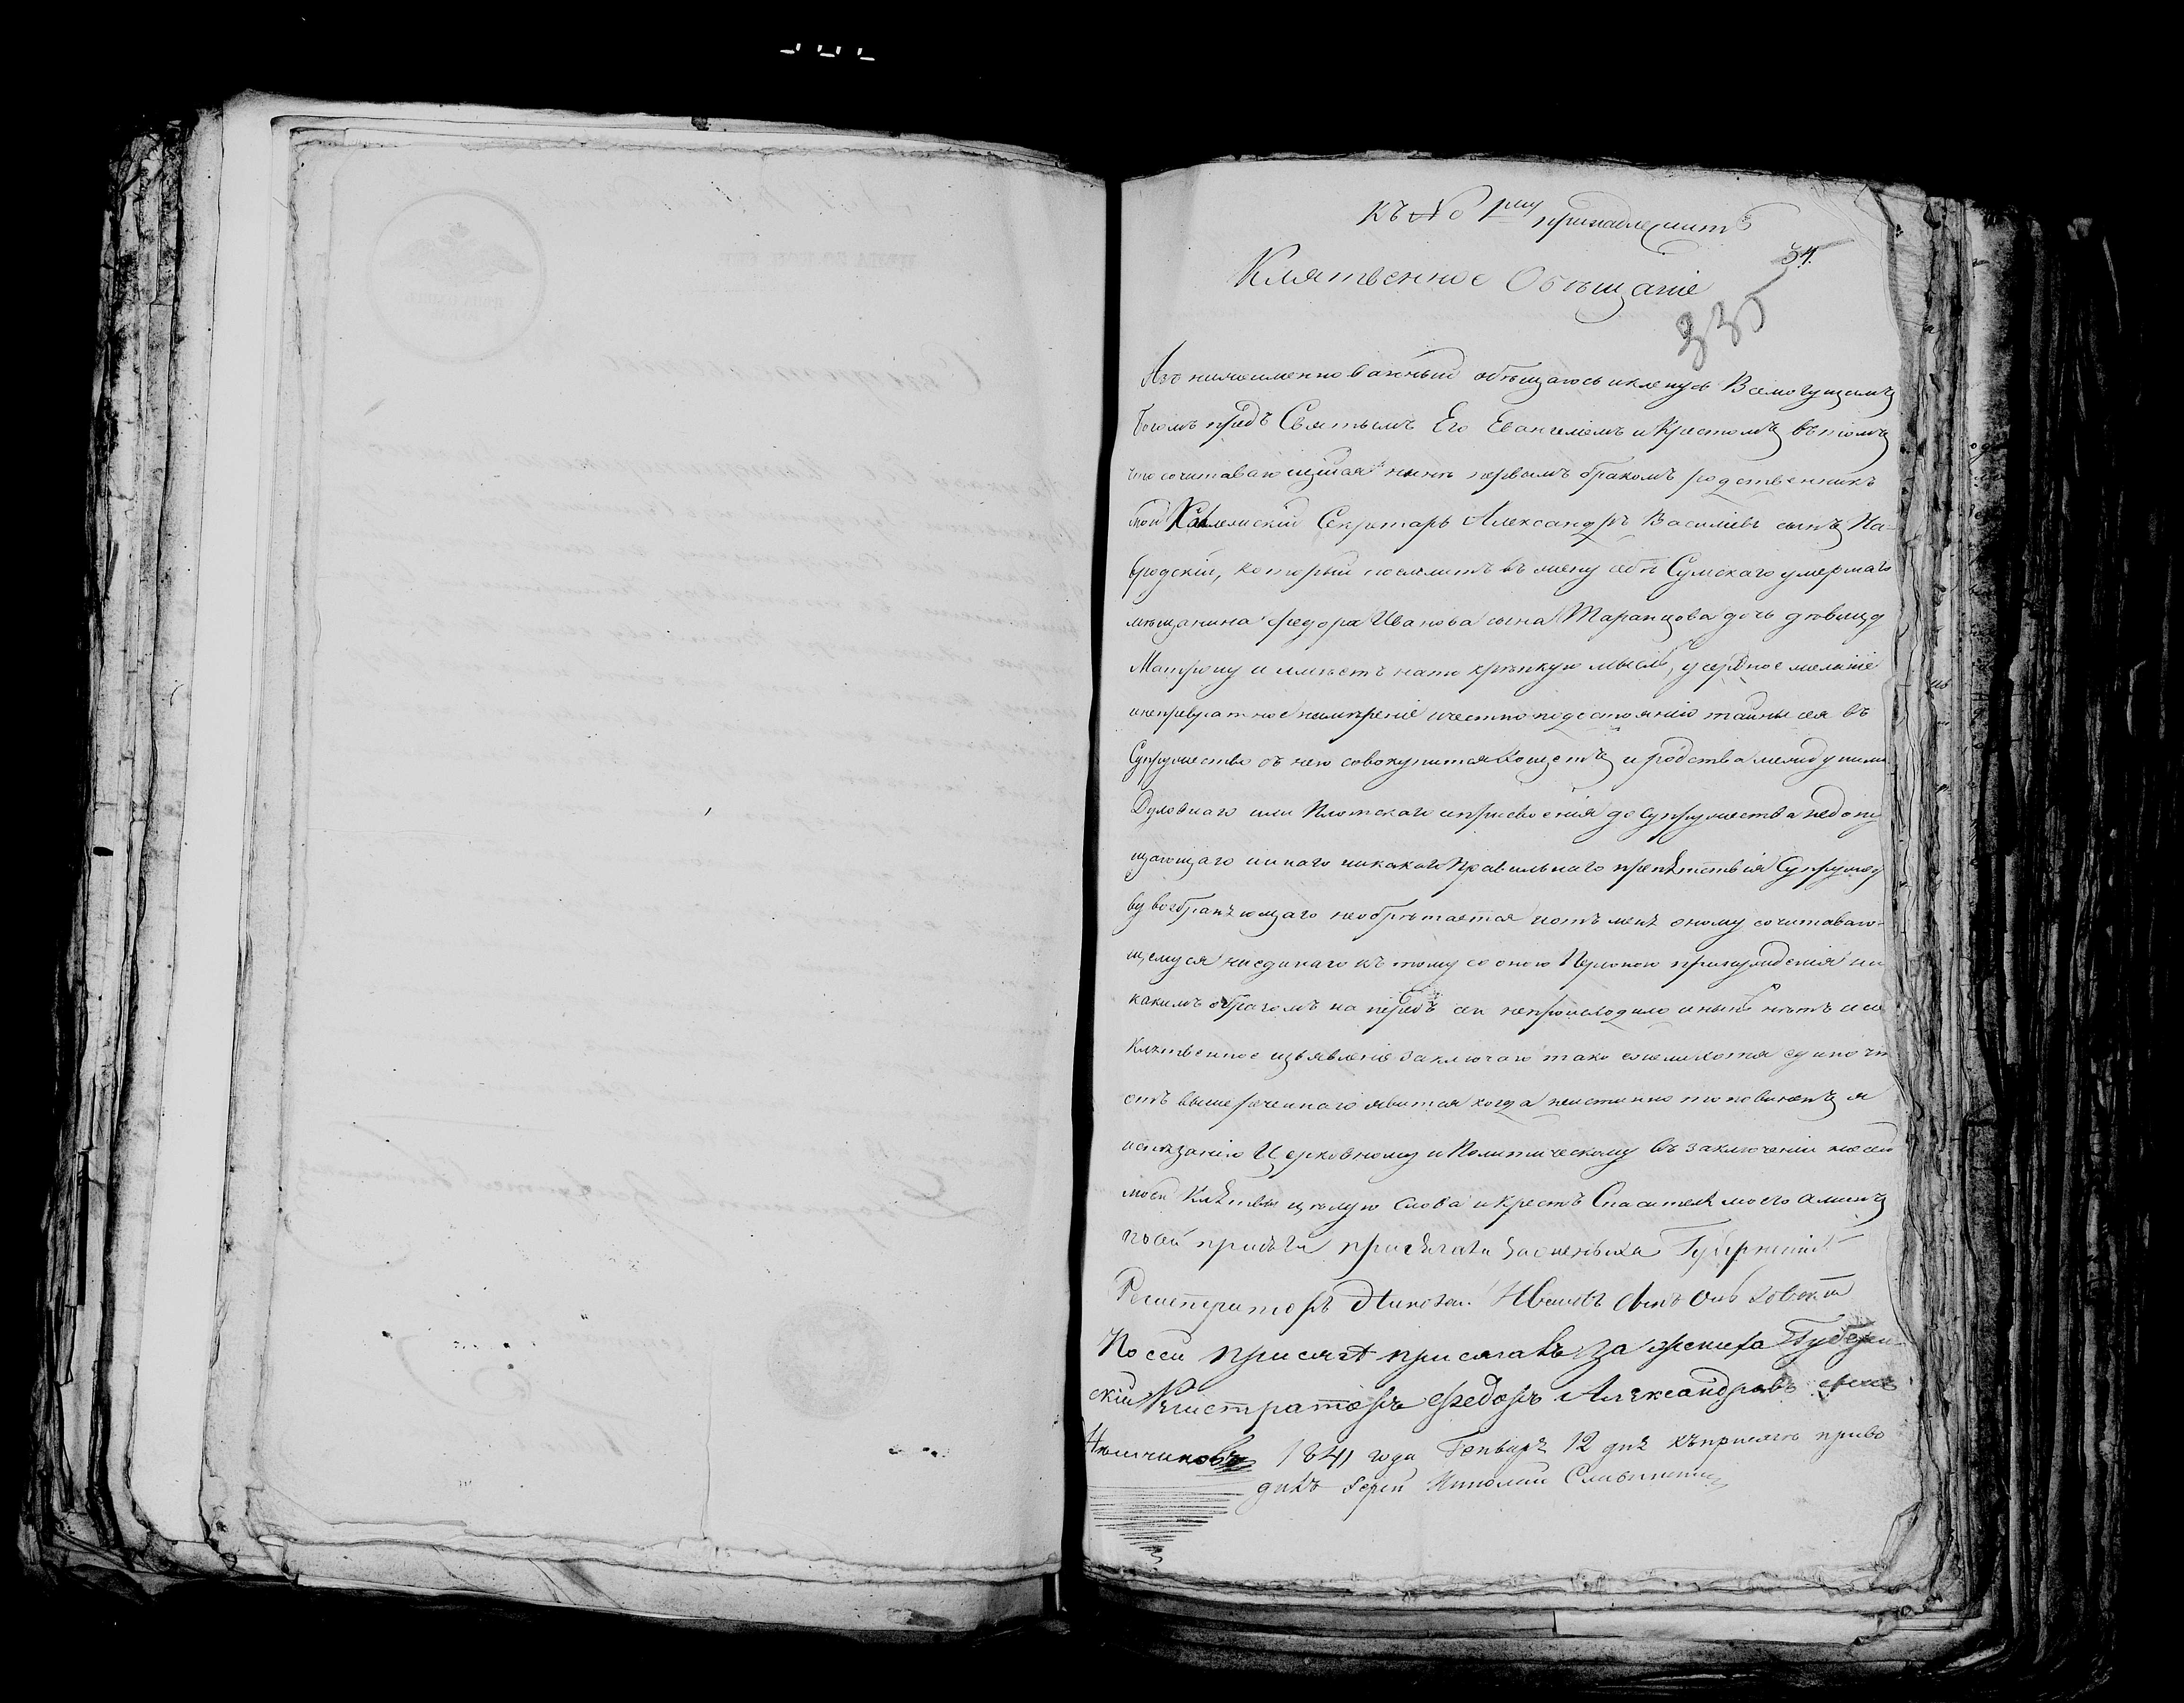 къ № 1му принадлежитъ
34.
Клятвенное Обѣщаніе
335
Азъ нижеименнованный обѣщаюсь и кленусь Всемогущимъ
Богомъ предъ Святымъ Его Евангеліемъ и Крестомъ въ томъ
что сочитавающійся нынѣ первымъ бракомъ родственникъ
мой Колежскій Секретарь Александръ Василіевъ сынъ На-
вродскій, который поемлитъ въ жену себѣ Сумскаго умершаго
мѣщанина Федора Иванова сына Таранцова дочь дѣвицу
Матрону и имѣетъ на то крѣпкую мысль, усердное желаніе
и непревратное намѣреніе и честно по достоянію тайны сея въ
Супружество съ нею совокупится хощетъ и родства между ними
Духовнаго или Плотскаго и присвоенія до супружества недопу
щающаго и инаго никакого Правильнаго препятствія Супружес
ву возбраняющаго необрѣтается и отъ мене оному сочитаваю-
щемуся ниединаго къ тому со оною Персоною принужденія ни
какимъ образомъ на предъ сіи непроисходило и нынѣ нѣтъ и сіе
Клятвенное изъявленіе заключаю тако ежели хотя едино что
отъ вышереченнаго явится когда неистинно то повиненъ я
истязанію Церковному и Политическому въ заключеніи же сей
моей Клятвы цѣлую Слова и Крестъ Спасителя моего аминь
по сей присяги присягалъ за жениха Губернскій
Регистраторъ Николай Ивановъ сынъ
По сей присягѣ присягавъ за жениха Губерн-
скій Регистраторъ Федоръ Александровъ сынъ
1841 года Генваря 12 дня къ присягѣ приво
дилъ Іерей Николай